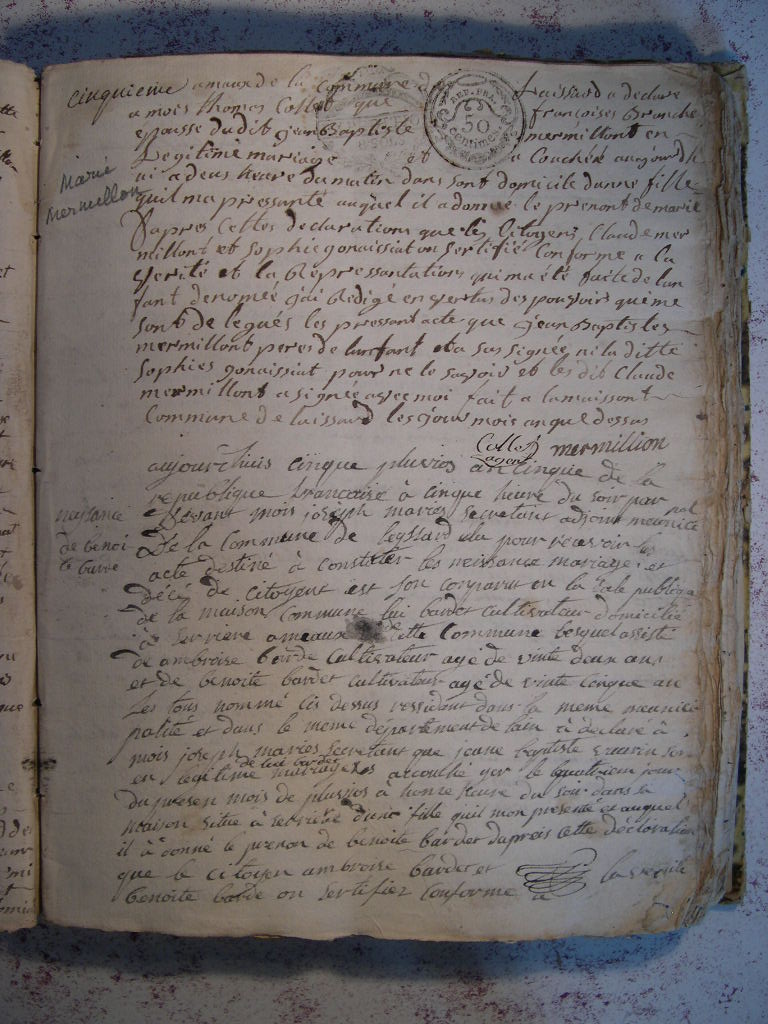 Cinquieme amaux de la Commune de laissard a declare
a mois thomas Collet que françoises Branche
epouse dudit jean Baptiste mermillont en
Legitime mariage et a Couchée aujourdh
ui a deus heure du matin dans sont domicile dunne fille
quil ma pressanté auquel il a donne le prenont de marie
Marie
Mermillon
Dapres Cettes declarations que les Citoyens Claude mer
millont et Sophie gonaissiat on Sertifié Conforme a la
verité et la Repressantations qui ma été faite de lan
fant denomée jai Redigé en vertus des pouvoirs qui me
sont de legués les pressant acte que jean Baptistes
mermillont peres de lanfant et a sus signée ni la ditte
Sophies gonaissiat pour ne le savoir et les dit Claude
mermillont a signée avec moi fait a la maissont
Commune de laissard les jour mois an que dessus
Collet agent mermillion
aujourthuis cinque pluvios an cinquie de la
republique francaise à cinque heure du soir par
devant mois joseph maries secretaire adjoint meunice pal
naissance
de benoi
te barde
de la Commune de leyssard elu pour recevoir les
acte destiné à constater les neissance mariage et
décés de citoyent est son conparut en la sale publique
de la maison Commune lui bardet cultivateur domicilié
à serviere ameaux de cette Commune lesquel assisté
de ambroise barde cultivateur agé de vinte deux ans
et de benoite bardet cultivateur agé de vinte cinque an
les tous nommé cis dessus ressidant dans la meme meunici
palité et dans le meme département de lain à déclaré à
mois joseph maries secretaire que jeane baptiste son
en légitime mariage de lui bardet acouchié yer le quatriem jour
du presen mois de pluvios à heure du soir dans sa
maison situe à serviere dune fille quil mon presenté et auquel
il à donné le prenon de benoite bardet dapreis cette déclaration
que le citoyen ambroise bardet et la verité
benoite barde on sertifiez Conforme à
REP. FRA.
50
centimes